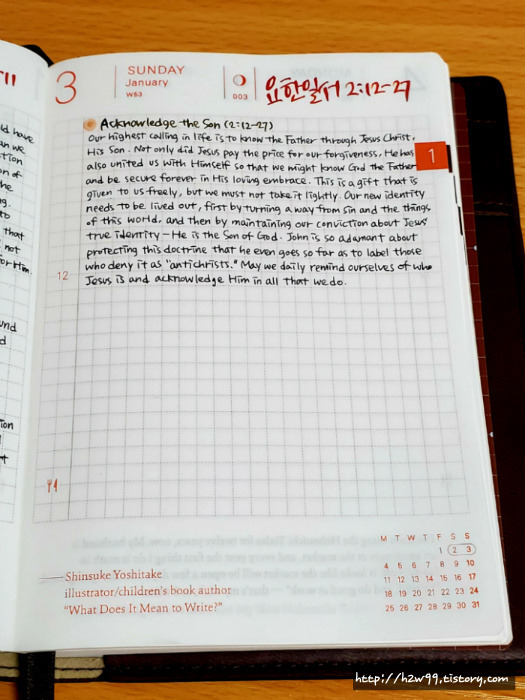 3
SUNDAY
January
W53
003
요한일서 2:12-27
Acknowledge the Son (2:12-27)
Our highest calling in life is to know the Father through Jesus Christ,
His Son. Not only did Jesus pay the price for our forgiveness, He has
also united us with Himself so that we might know God the Father
and be secure forever in His loving embrace. This is a gift that is
given to us freely, but we must not take it lightly. Our new identity
needs to be lived out, first by turning away from sin and the things
of this world, and then by maintaining our conviction about Jesus'
true identity – He is the Son of God. John is so adamant about
protecting this doctrine that he even goes so far as to label those
who deny it as "antichrists." May we daily remind ourselves of who
Jesus is and acknowledge Him in all that we do.
1
12
ld have
an we
tion
on of
the
ng.
to
that
not
for Him.
und
d
tion
t
Shinsuke Yoshitake
illustrator/children's book author
"What Does It Mean to Write?"
M T W T F S S
1 2 3
4 5 6 7 8 9 10
11 12 13 14 15 16 17
18 19 20 21 22 23 24
25 26 27 28 29 30 31
http://h2w99.tistory.com